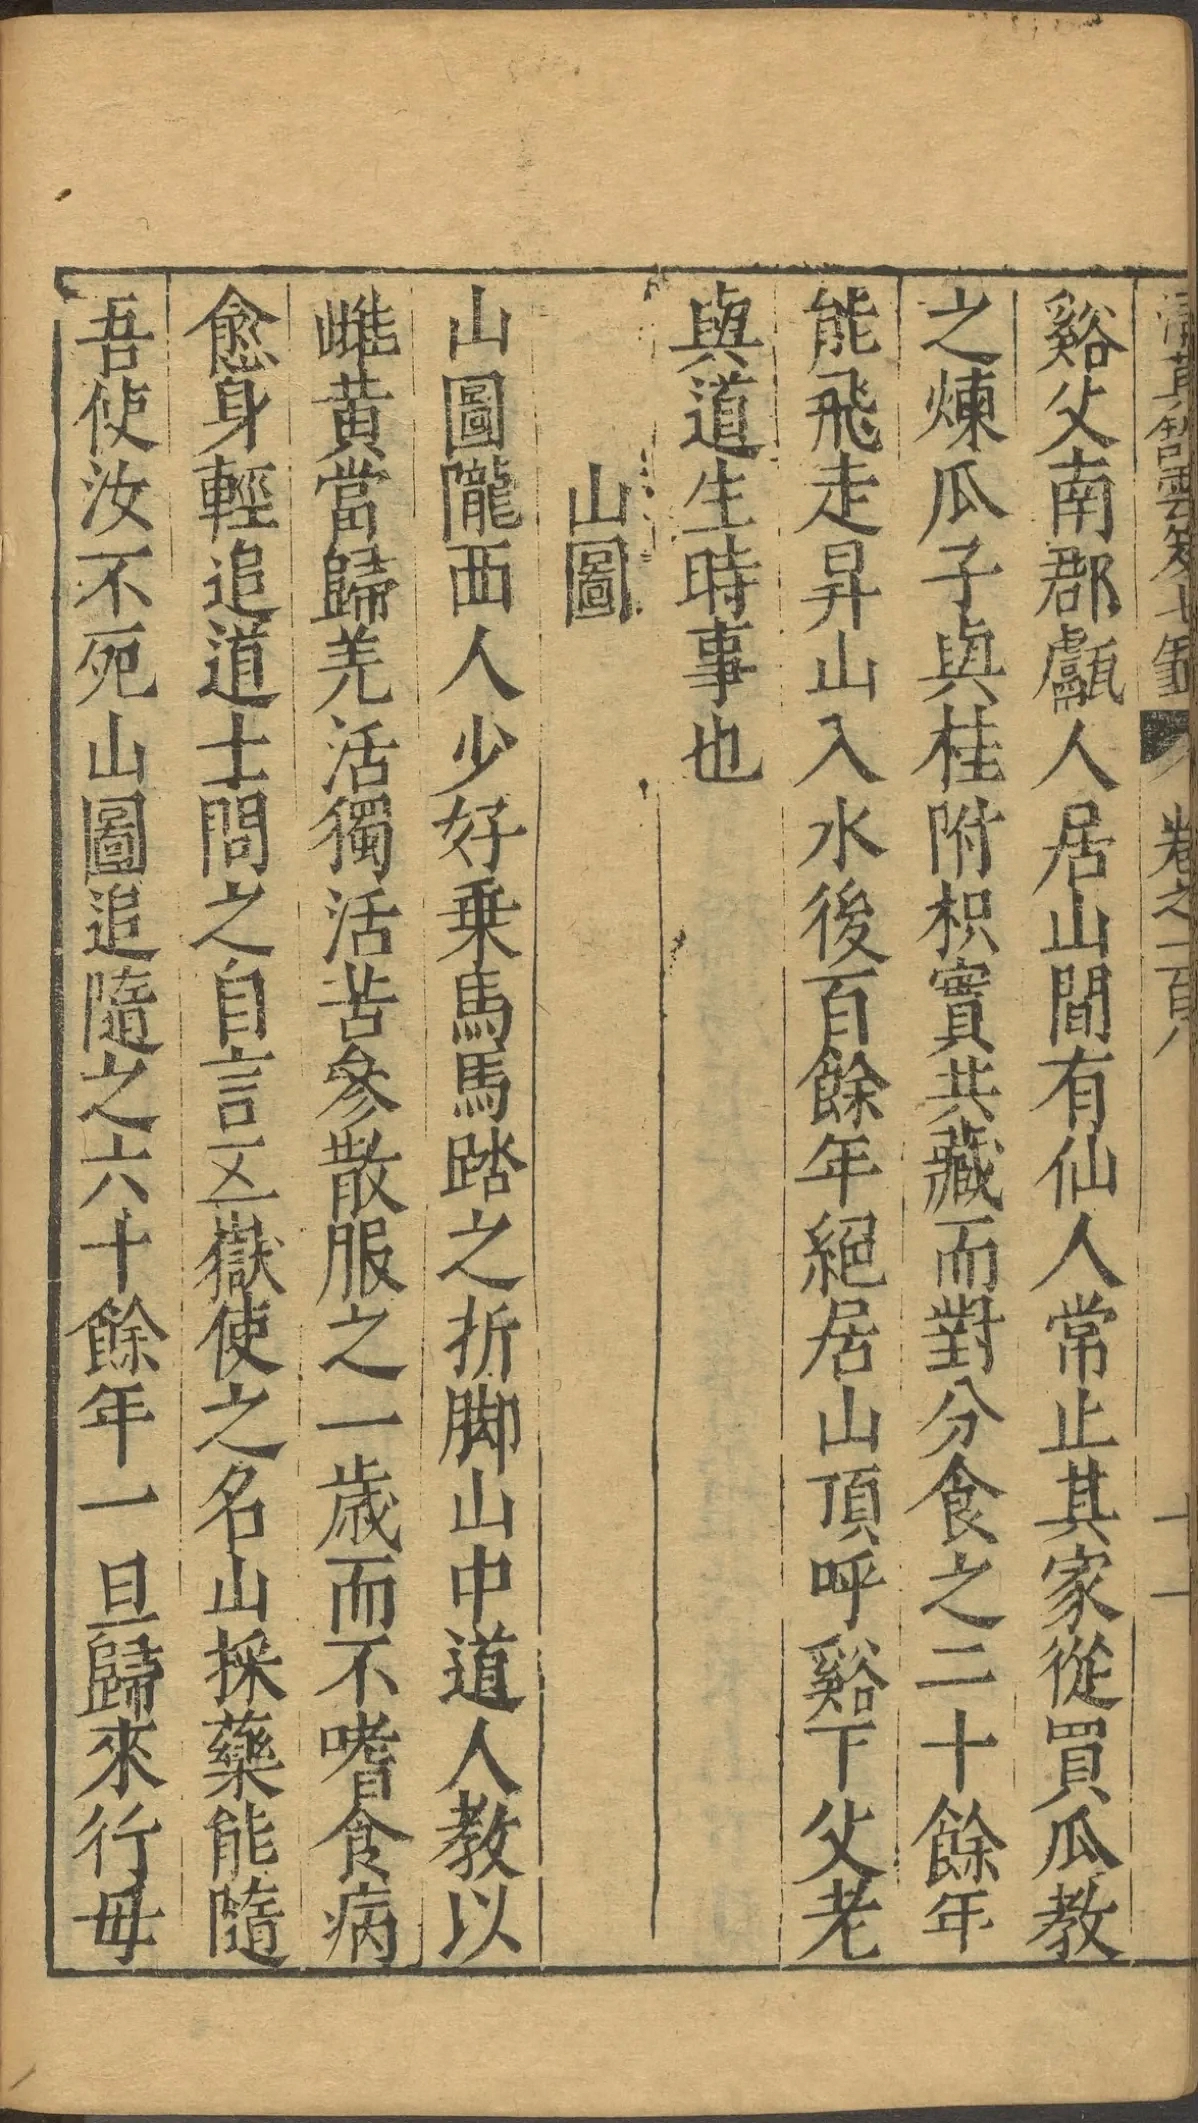 清真館雲笈七籤 卷之一百八 十一
谿父南郡鄘人居山間有仙人常止其家從買瓜教
之煉瓜子與桂附枳實共藏而對分食之二十餘年
能飛走昇山入水後百餘年絕居山頂呼谿下父老
與道生時事也
山圖
山圖隴西人少好乗馬馬踏之折脚山中道人教以
雌黄當歸羗活獨活苦參散服之一歳而不嗜食病
愈身輕追道士問之自言五嶽使之名山採藥能隨
吾使汝不死山圖追隨之六十餘年一旦歸來行毋